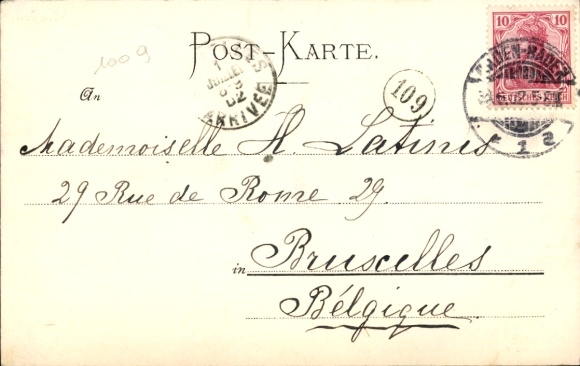 1009
POST-KARTE.
10
10
BADEN-BADEN
1
JUILLET
02
ARRIVÉE
109
An
Mademoiselle H. Latinis
29 Rue de Rome 29
in Bruxelles
Belgique.